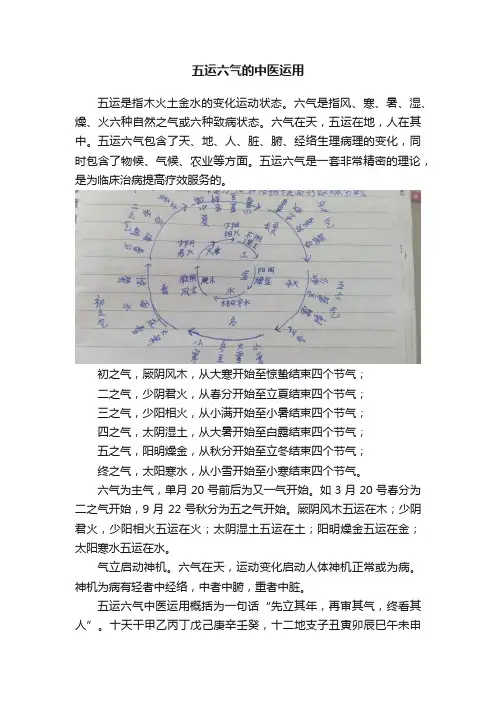 五运六气的中医运用
五运是指木火土金水的变化运动状态。六气是指风、寒、暑、湿、
燥、火六种自然之气或六种致病状态。六气在天，五运在地，人在其
中。五运六气包含了天、地、人、脏、腑、经络生理病理的变化，同
时包含了物候、气候、农业等方面。五运六气是一套非常精密的理论，
是为临床治病提高疗效服务的。
夏
少阴
君火
少阳
相火
火
土
金
阳明
燥金
秋
厥阴
风木
春
水
太阳寒水
冬
初之气
小寒
冬至
大雪
小雪
初之气，厥阴风木，从大寒开始至惊蛰结束四个节气；
二之气，少阴君火，从春分开始至立夏结束四个节气；
三之气，少阳相火，从小满开始至小暑结束四个节气；
四之气，太阴湿土，从大暑开始至白露结束四个节气；
五之气，阳明燥金，从秋分开始至立冬结束四个节气；
终之气，太阳寒水，从小雪开始至小寒结束四个节气。
六气为主气，单月 20 号前后为又一气开始。如 3 月 20 号春分为
二之气开始，9 月 22 号秋分为五之气开始。厥阴风木五运在木；少阴
君火，少阳相火五运在火；太阴湿土五运在土；阳明燥金五运在金；
太阳寒水五运在水。
气立启动神机。六气在天，运动变化启动人体神机正常或为病。
神机为病有轻者中经络，中者中腑，重者中脏。
五运六气中医运用概括为一句话“先立其年，再审其气，终看其
人”。十天干甲乙丙丁戊己庚辛壬癸，十二地支子丑寅卯辰巳午未申